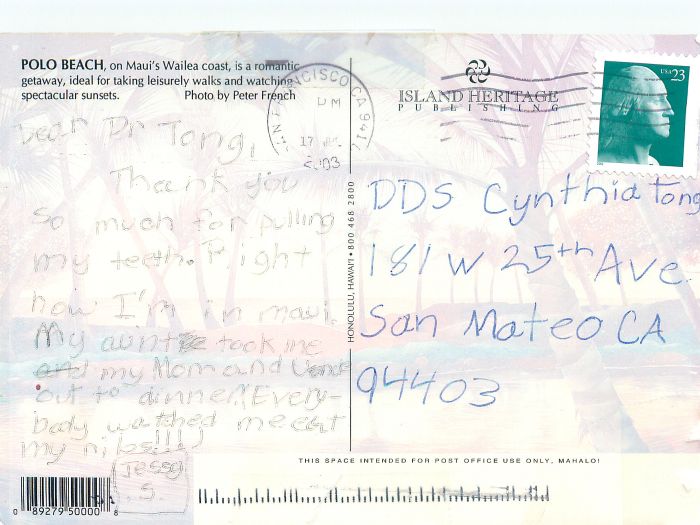 POLO BEACH, on Maui's Wailea coast, is a romantic
getaway, ideal for taking leisurely walks and watching
spectacular sunsets. Photo by Peter French
ISLAND HERITAGE
PUBLISHING
USA 23
SAN FRANCISCO CA 941
PM
17
2003
Dear Dr Tong,
Thank you
so much for pulling
my teeth. Right
now I'm in maui.
My aunt took me
and my Mom and
out to dinner! Every-
body watched me eat
my ribs!!!
Jessy
S.
HONOLULU, HAWAI'I • 800 468 2800
DDS Cynthia Tong
181 W 25th Ave.
San Mateo CA
94403
THIS SPACE INTENDED FOR POST OFFICE USE ONLY, MAHALO!
0 89279 50000 8